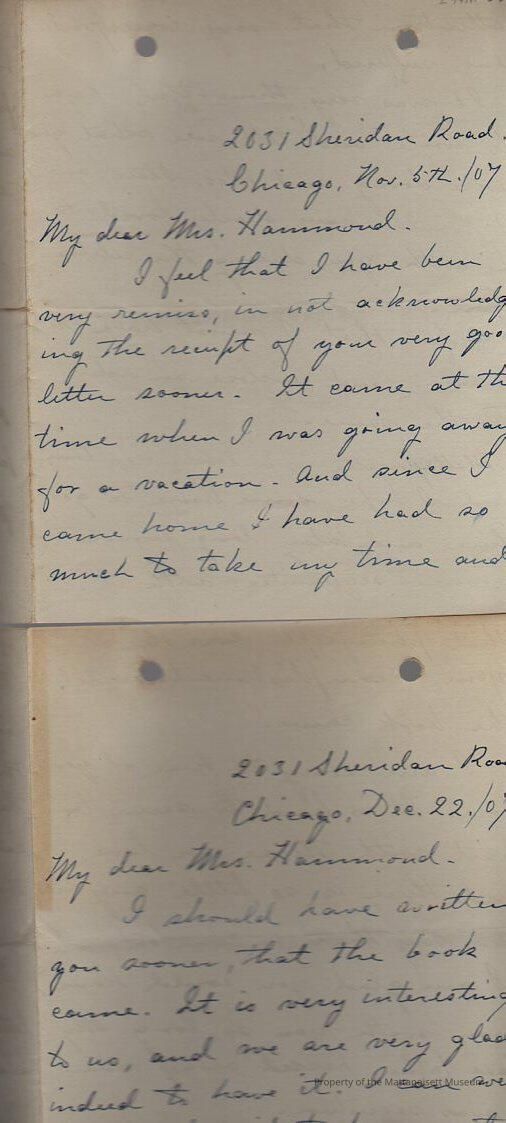 2031 Sheridan Road.
Chicago, Nov. 5th./07
My dear Mrs. Hammond.
I feel that I have been
very remiss, in not acknowledg
ing the receipt of your very goo
letter sooner. It came at th
time when I was going away
for a vacation. And since I
came home I have had so
much to take my time and
2031 Sheridan Roa
Chicago, Dec. 22./07
My dear Mrs. Hammond.
I should have written
you sooner, that the book
came. It is very interesting
to us, and we are very glad
indeed to have it. I can we
Property of the Mattapoisett Museum